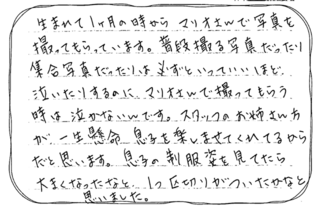 生まれて1ヶ月の時から マリオさんで写真を
撮ってもらっています。普段撮る写真だったり
集合写真だったりは 必ずといっていいほど、
泣いたりするのに、マリオさんで撮ってもらう
時は 泣かないんです。スタッフのお姉さん方
が 一生懸命 息子を楽しませてくれてるから
だと思います。息子の制服姿を見てたら、
大きくなったなと、1つ区切りがついたかなと
思いました。